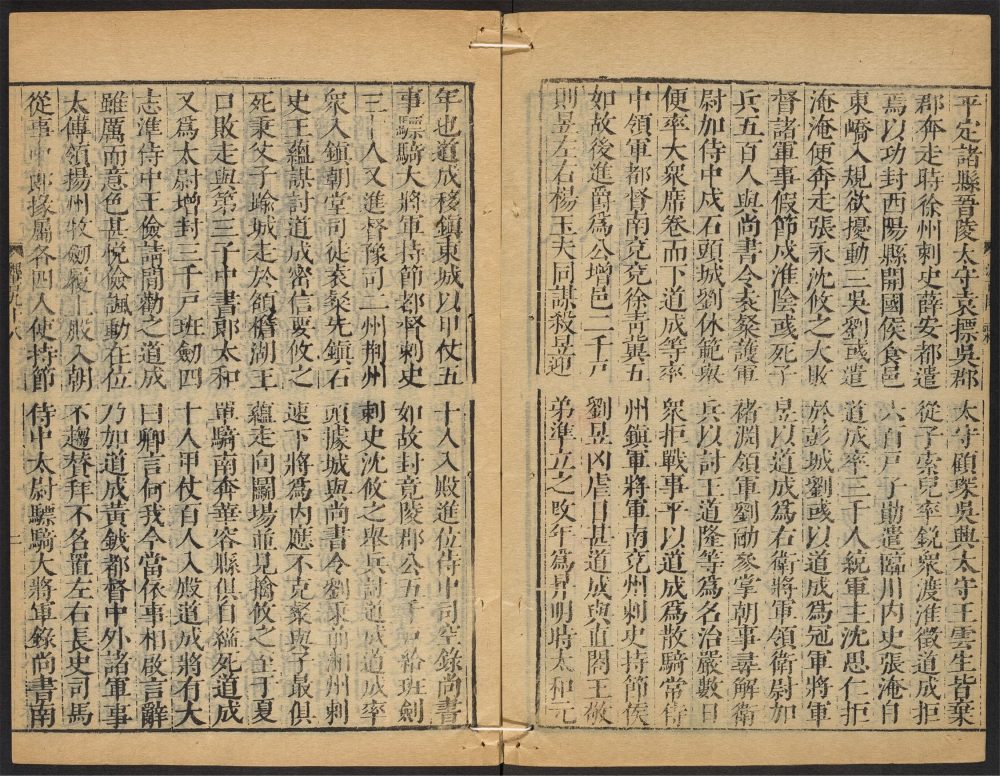 平定諸縣晉陵太守袁摽吳郡太守顧琛吳興太守王雲生皆棄
郡奔走時徐州刺史薛安都遣從子索兒率銳衆渡淮徵道成拒
焉以功封西陽縣開國侯食邑六百戸子勛遣臨川内史張淹自
東嶠入規欲擾動三吳劉彧遣道成率三千人統軍主沈思仁拒
淹淹便奔走張永沈攸之大敗於彭城劉彧以道成爲冠軍將軍
督諸軍事假節戍淮陰彧死子昱以道成爲右衛將軍領衛尉加
兵五百人與尚書令袁粲護軍褚淵領軍劉勔參掌朝事尋解衛
尉加侍中戍石頭城劉休範舉兵以討王道隆等爲名治嚴數日
便率大衆席卷而下道成等率衆拒戰事平以道成爲散騎常侍
中領軍都督南兗兗徐青冀五州鎮軍將軍南兗州刺史持節侯
如故後進爵爲公增邑二千戸劉昱凶虐日甚道成與直閤王敬
則昱左右楊玉夫同謀殺昱迎弟準立之改年爲昇明時太和元
年也道成移鎮東城以甲仗五十人入殿進位侍中司空錄尚書
事驃騎大將軍持節都督刺史如故封竟陵郡公五千戸給班劍
三十人又進督豫司二州荆州刺史沈攸之舉兵討道成道成率
衆入鎮朝堂司徒袁粲先鎮石頭據城與尚書令劉秉前湘州刺
史王蘊謀討道成密信要攸之速下將爲内應不克粲與子最俱
死秉父子踰城走於額檐湖王蘊走向鬭場並見擒攸之至于夏
口敗走與第三子中書郎太和單騎南奔華容縣俱自縊死道成
又爲太尉增封三千戸班劔四十人甲仗百人入殿道成將有大
志準侍中王儉請間勸之道成曰卿言何我今當依事相啟言辭
雖厲而意色甚悅儉諷動在位乃加道成黄鉞都督中外諸軍事
太傅領揚州牧劔履上殿入朝不趨替拜不名置左右長史司馬
從事中郎掾屬各四人使持節侍中太尉驃騎大將軍錄尚書南